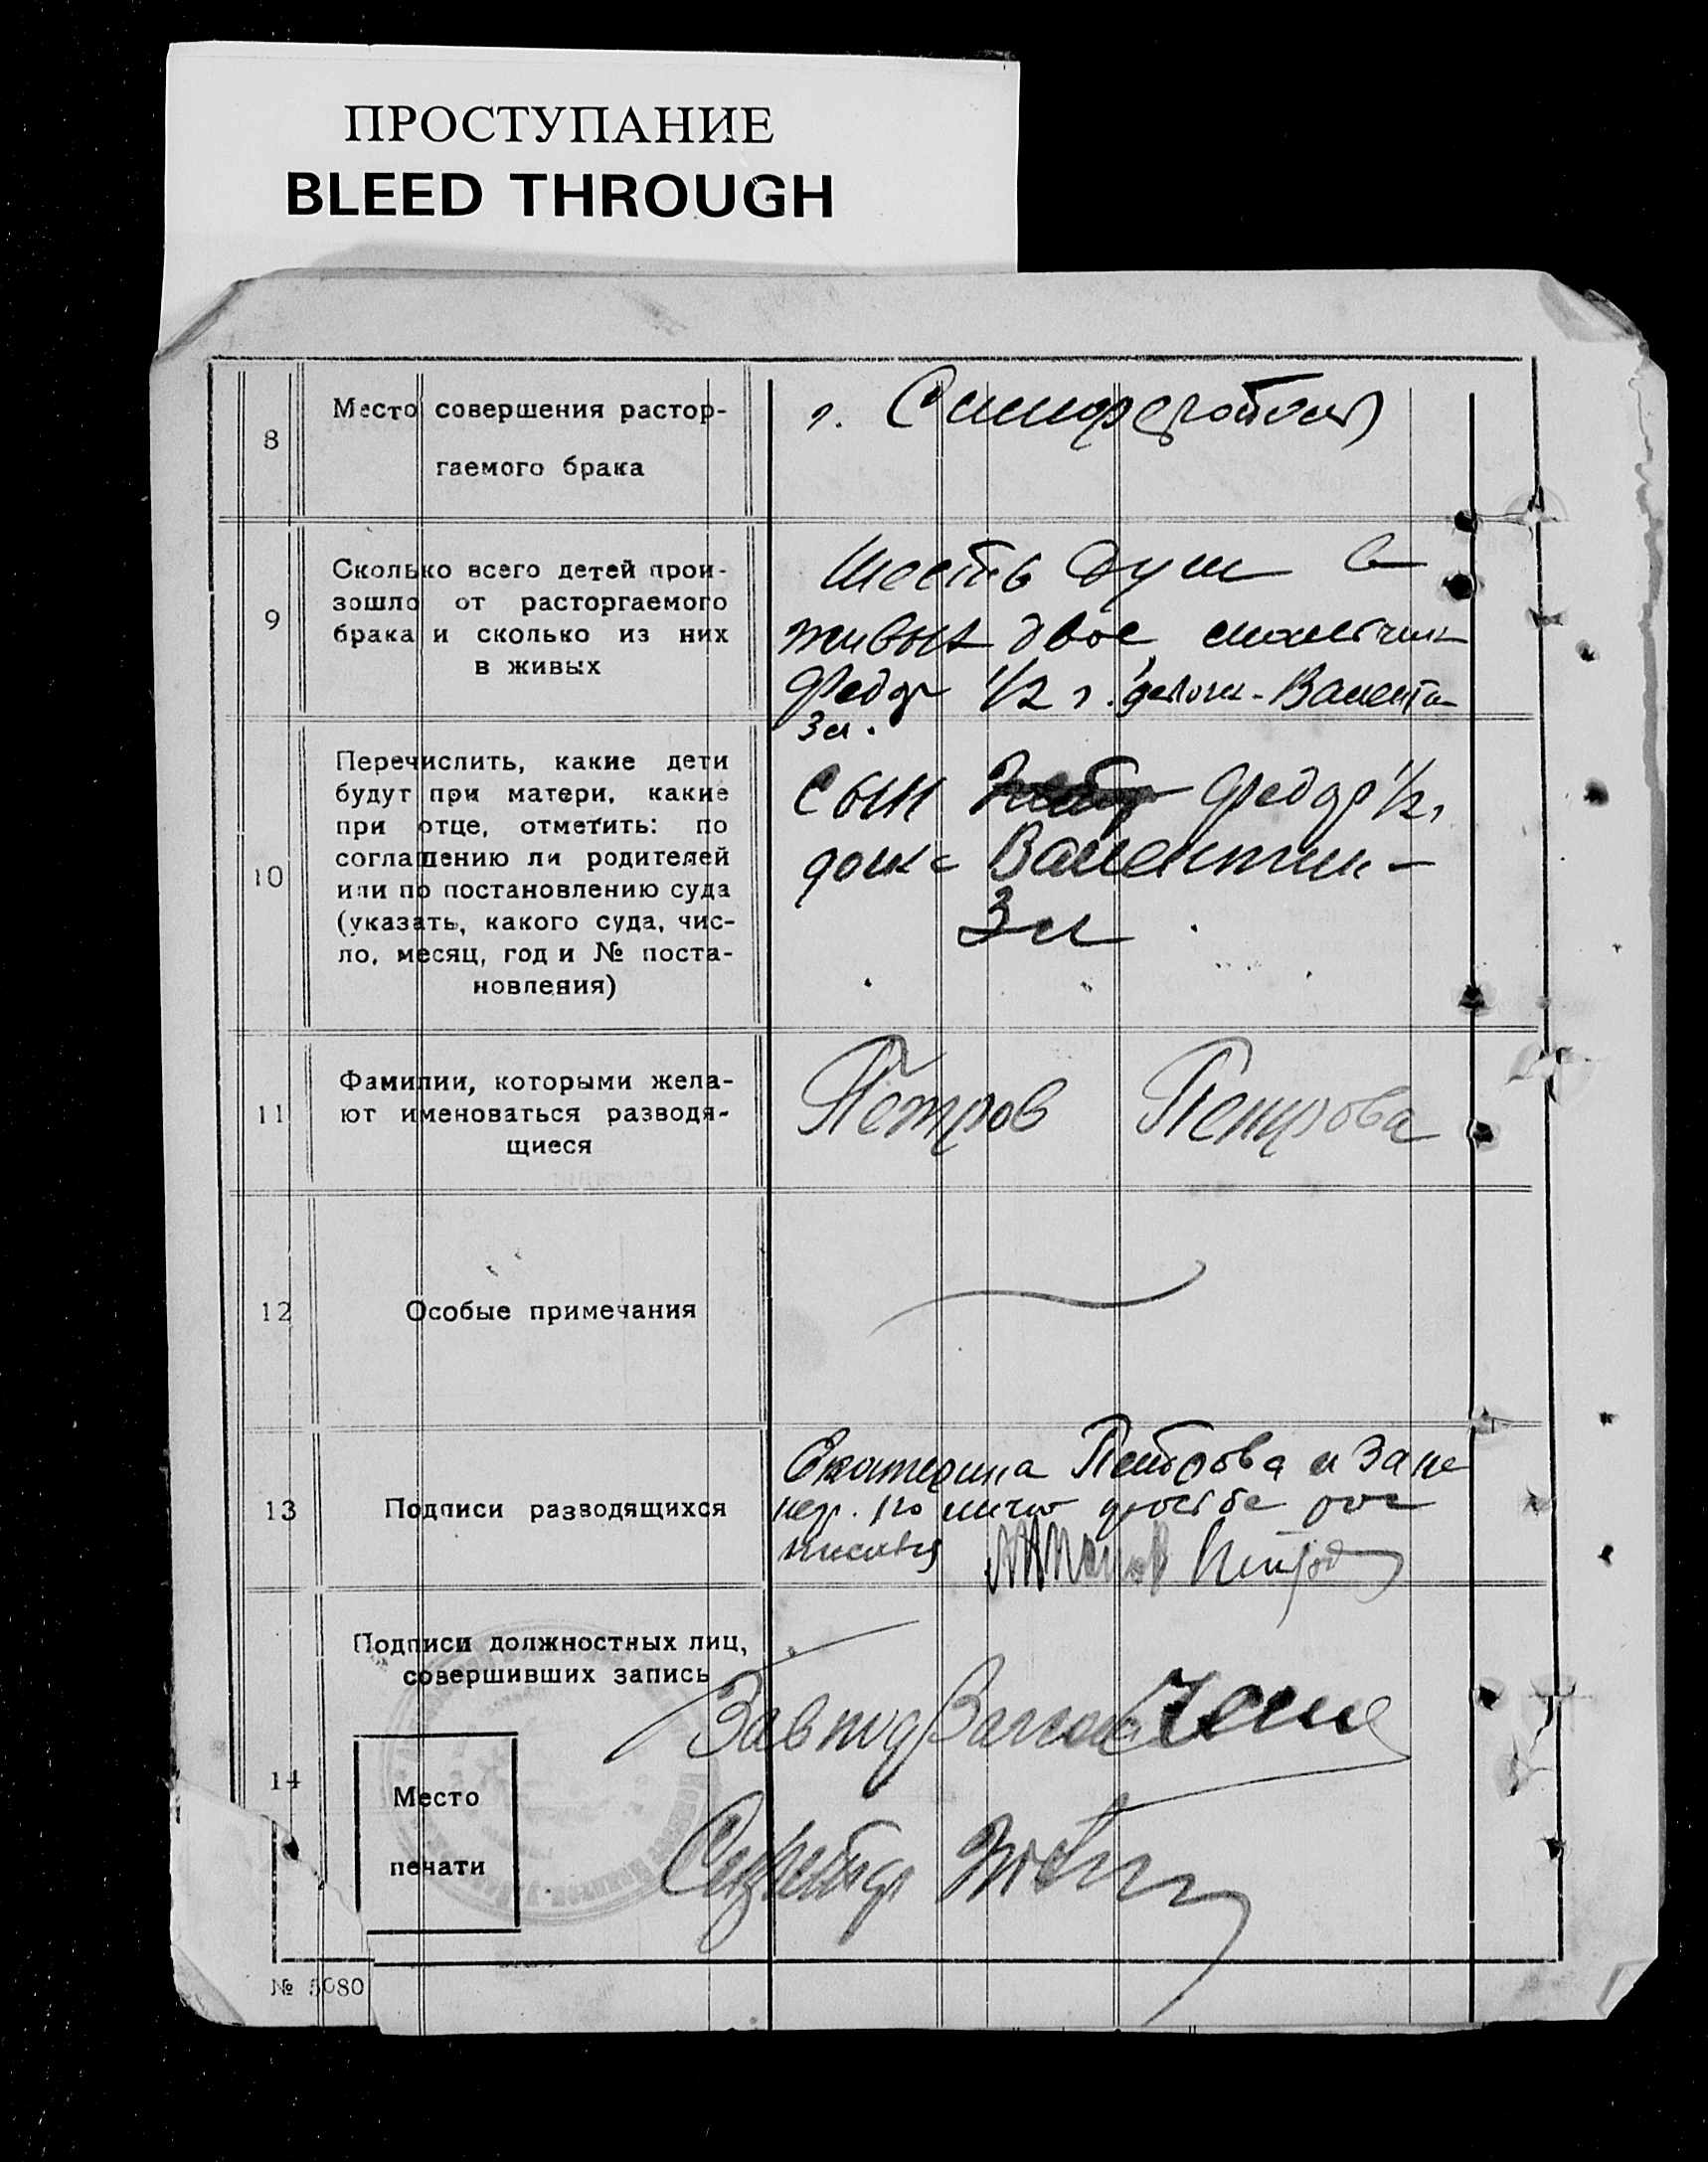 ПРОСТУПАНИЕ
BLEED THROUGH
8
Место совершения растор-
гаемого брака
г. Симферополь
9
Сколько всего детей прои-
зошло от расторгаемого
брака и сколько из них
в живых
шесть душ в
живых двое мальчик
Федор 1/2 г. девочк- Валенти-
3 л.
10
Перечислить, какие дети
будут при матери, какие
при отце, отметить: по
соглашению ли родителей
или по постановлению суда
(указать, какого суда, чис-
ло, месяц, год и № поста-
новления)
Сын Федор 1/2 г
дочь - Валентин-
3 л
11
Фамилии, которыми жела-
ют именоваться разводя-
щиеся
Петров Петрова
12
Особые примечания
13
Подписи разводящихся
Екатерина Петрова и за не
гр. по личн просьбе рос
писался Петров
14
Подписи должностных лиц,
совершивших запись
Завпод
Место
печати
Секретар
№ 5080